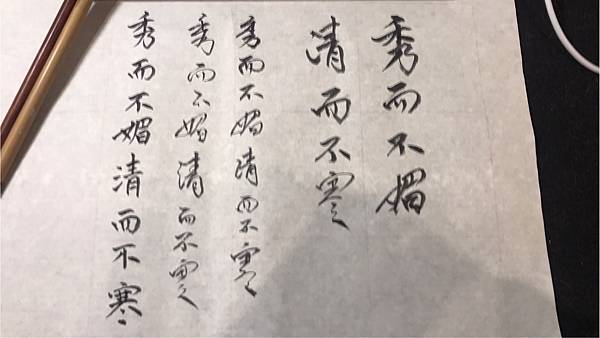 秀而不媚
清而不寒
秀而不媚清而不寒
秀而不媚清而不寒
秀而不媚清而不寒